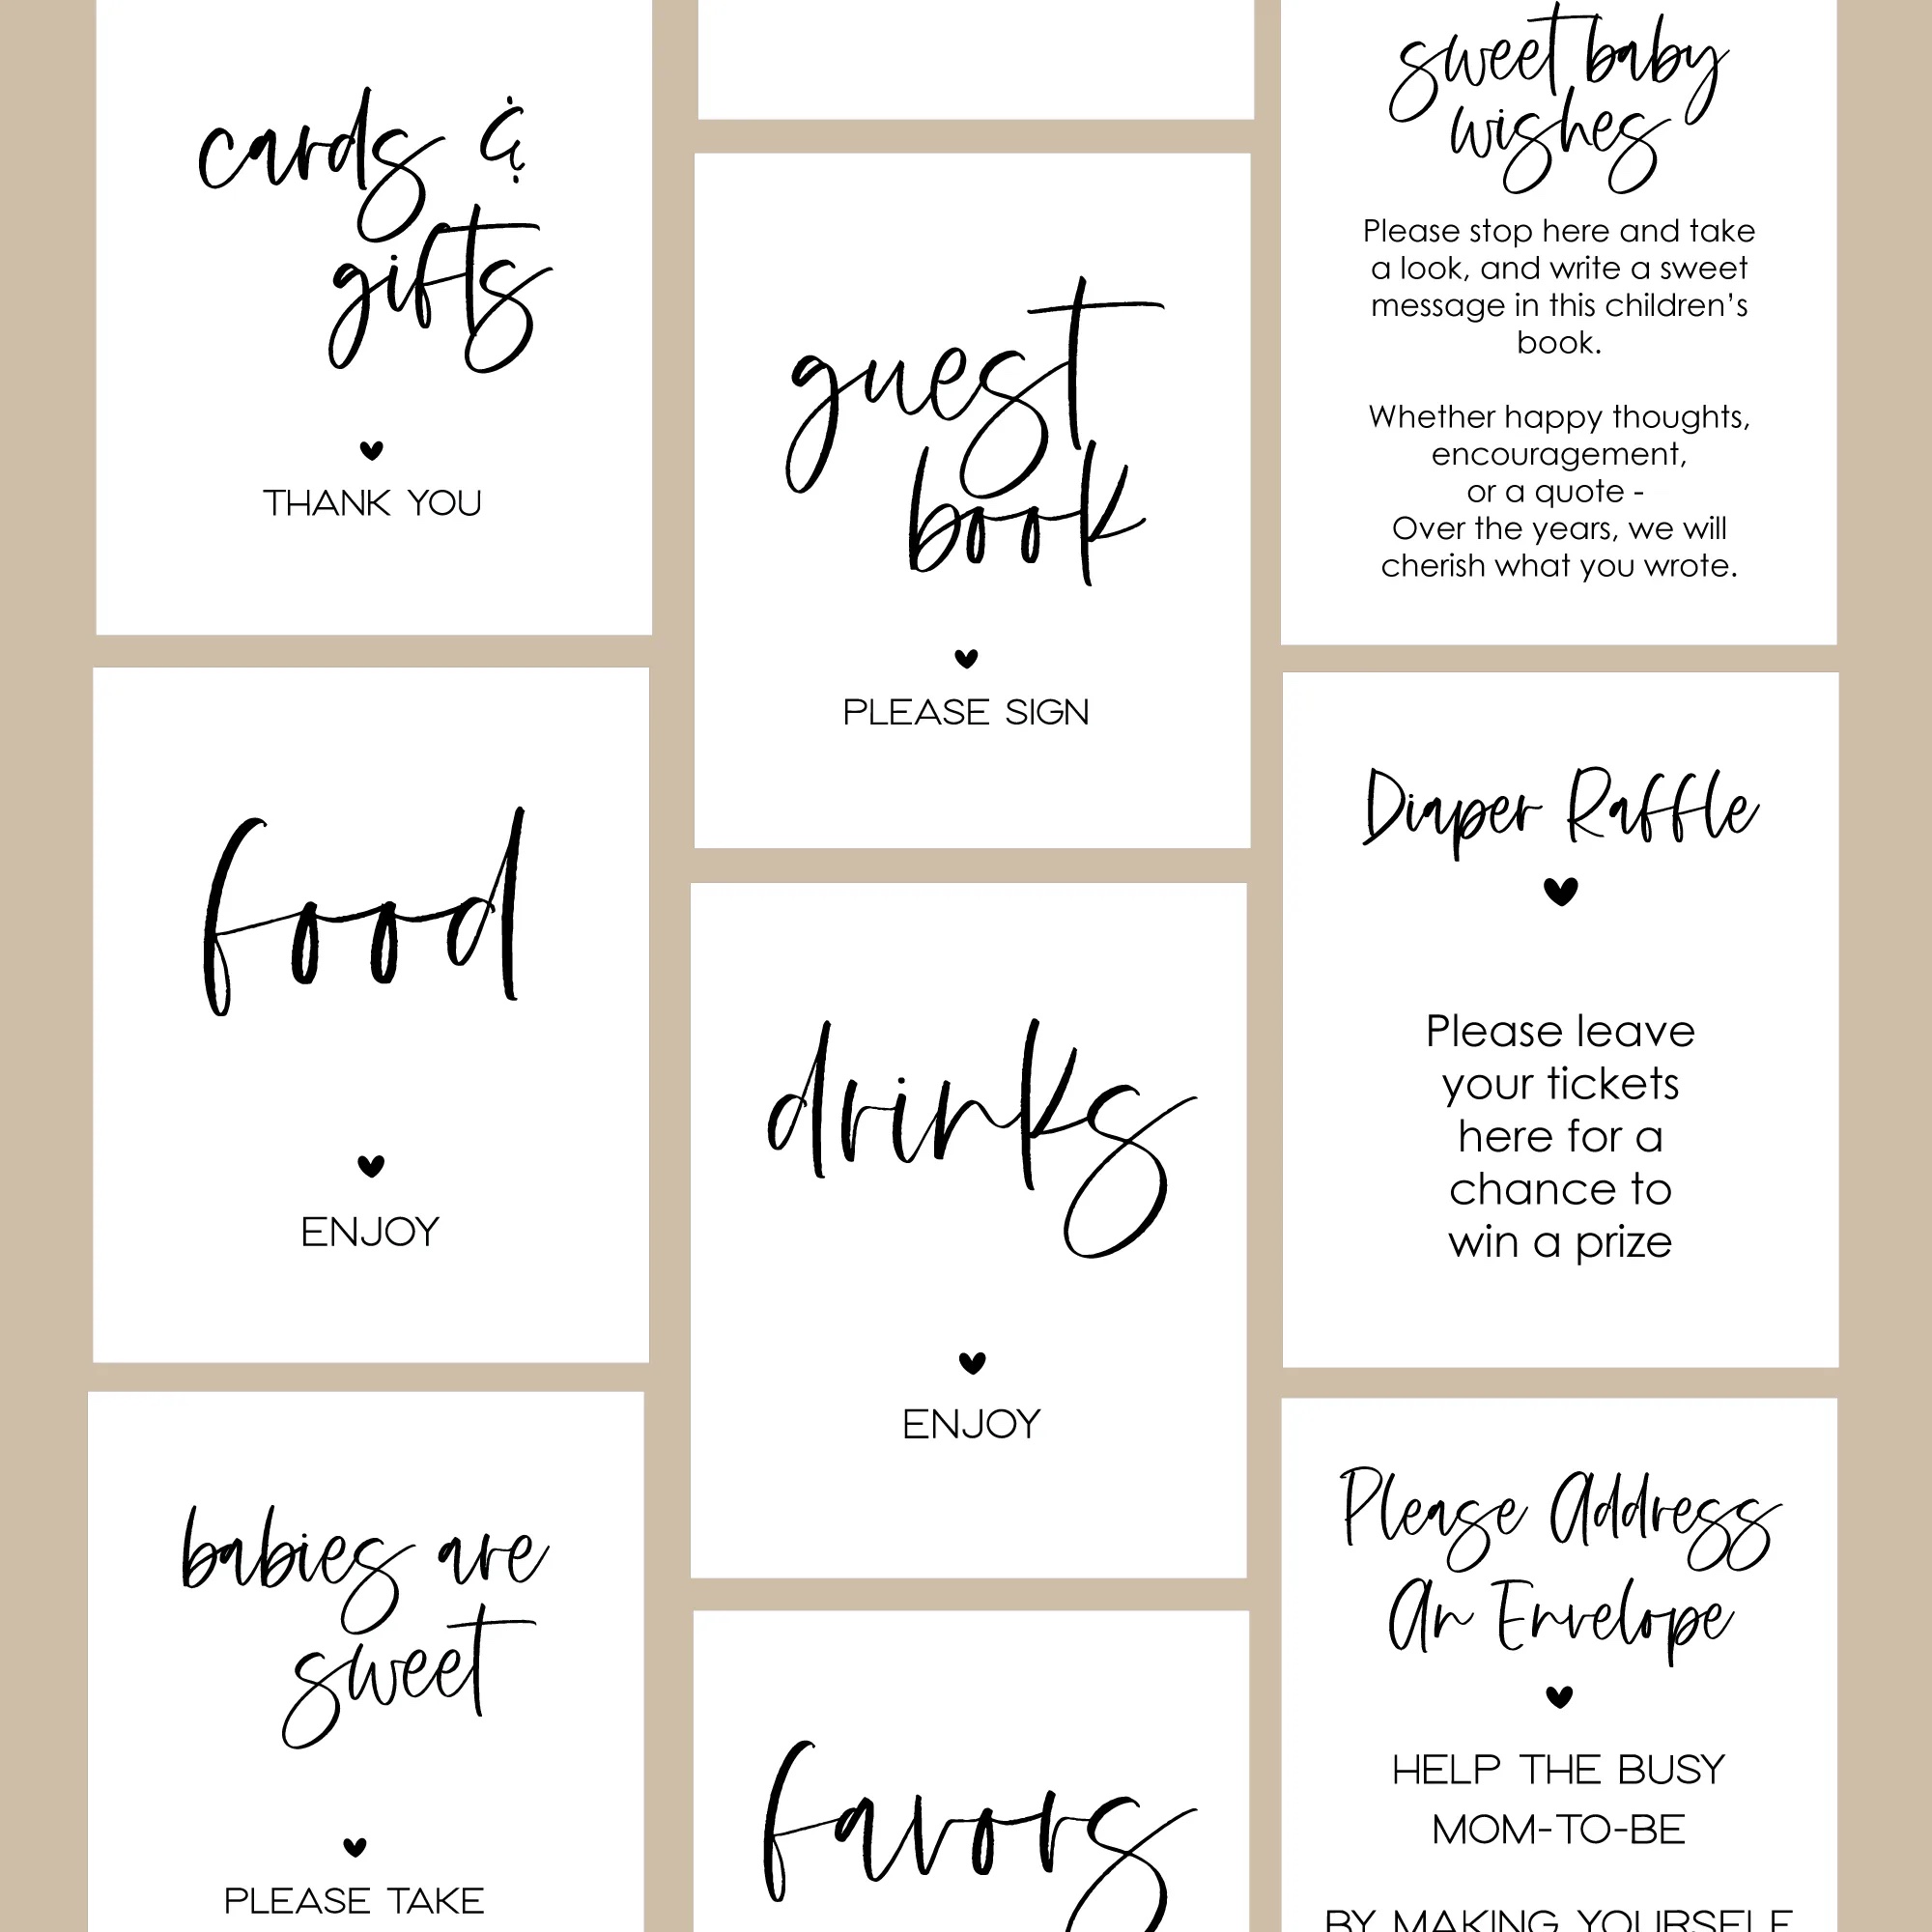 cards &
gifts
THANK YOU
food
ENJOY
babies are
sweet
PLEASE TAKE
guest
book
PLEASE SIGN
drinks
ENJOY
favors
sweet baby
wishes
Please stop here and take
a look, and write a sweet
message in this children’s
book.
Whether happy thoughts,
encouragement,
or a quote -
Over the years, we will
cherish what you wrote.
Diaper Raffle
Please leave
your tickets
here for a
chance to
win a prize
Please Address
An Envelope
HELP THE BUSY
MOM-TO-BE
BY MAKING YOURSELF